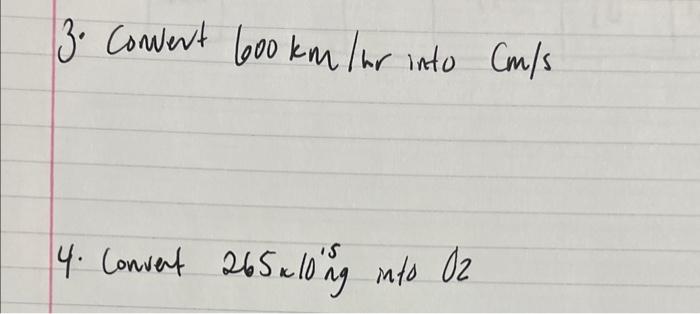 3. Convert 600 km/hr into Cm/s
4. Convert 265x10¹⁵ ng into Oz